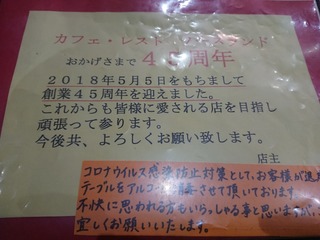 カフェ・レスト
おかげさまで 45周年
2018年5月5日をもちまして
創業45周年を迎えました。
これからも皆様に愛される店を目指し
頑張って参ります。
今後共、よろしくお願い致します。
店主
コロナウイルス感染防止対策として、お客様が退
テーブルをアルコール消毒させて頂いております
不快に思われる方もいらっしゃる事と思いますが、
宜しくお願いいたします。